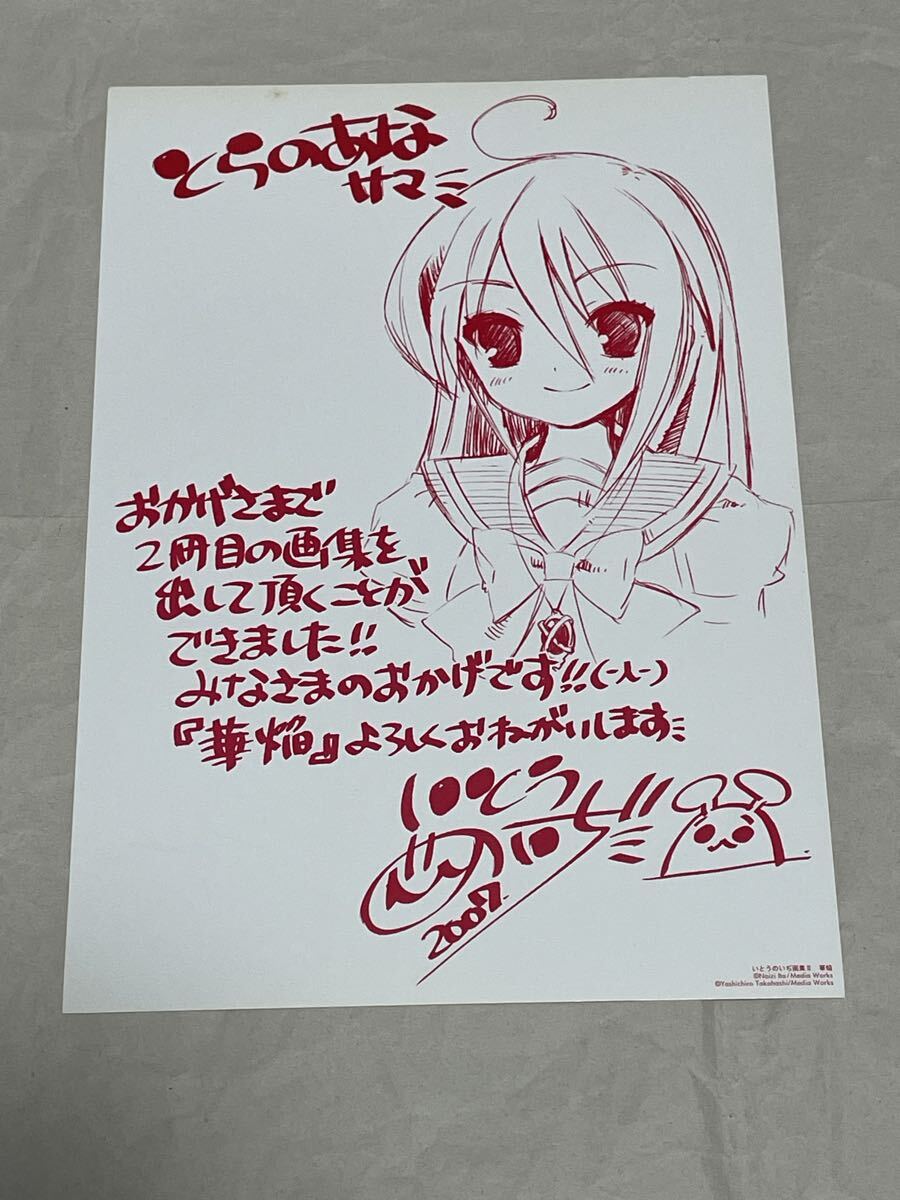 とらのあな
サマ
おかげさまで
2冊目の画集を
出して頂くことが
できました!!
みなさまのおかげです!!(-人-)
『華焔』よろしくおねがいします
いとう
のいぢ
2007.
いとうのいぢ画集Ⅱ 華焔
©Noizi Ito/Media Works
©Yashichiro Takahashi/Media Works